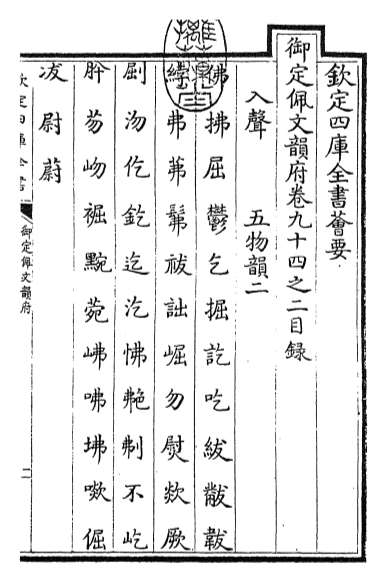 欽定四庫全書薈要
御定佩文韻府卷九十四之二目錄
入聲 五物韻二
佛 拂 屈 鬱 乞 掘 訖 吃 紱 黻 韍
弗 茀 髴 祓 詘 崛 勿 熨 欻 厥
沕 仡 釳 迄 汔 怫 艴 刜 不 屹
肸 芴 岉 黦 菀 岪 咈 坲 倔
冹 尉 蔚
欽定四庫全書
御定佩文韻府
二